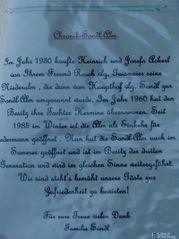 Chronik-Sondl Alm
Im Jahr 1930 kaufte Heinrich und Josefa Ackerl
von Ihrem Freund Rasch zlg. Gusmeier seine
Niederalm, die dann vom Haupthof zlg. Sondl zur
Alm umgenannt wurde. Im Jahr 1960 hat den
Besitz ihre Tochter Hermine übernommen. Seit
1985 im Winter ist die Alm als Einkehr für
jedermann geöffnet. Nun hat die Sondl Alm auch im
Sommer geöffnet und ist im Besitz der dritten
Generation und wird im gleichen Sinne weitergeführt.
Wir sind stets bemüht unsere Gäste zur
Zufriedenheit zu bewirten!
Für eure Treue vielen Dank
Familie Sondl